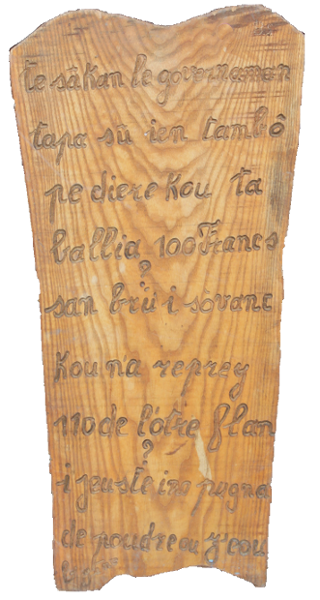 te sâkan le governaman
tapa sŭ ien tambô
pe diere kou ta
ballia 100 Francs
?
san brü i sovanc
kouna reprey
mode l'ôtre flan
?
i jeuste ino pugna
de poudre ou z'eou